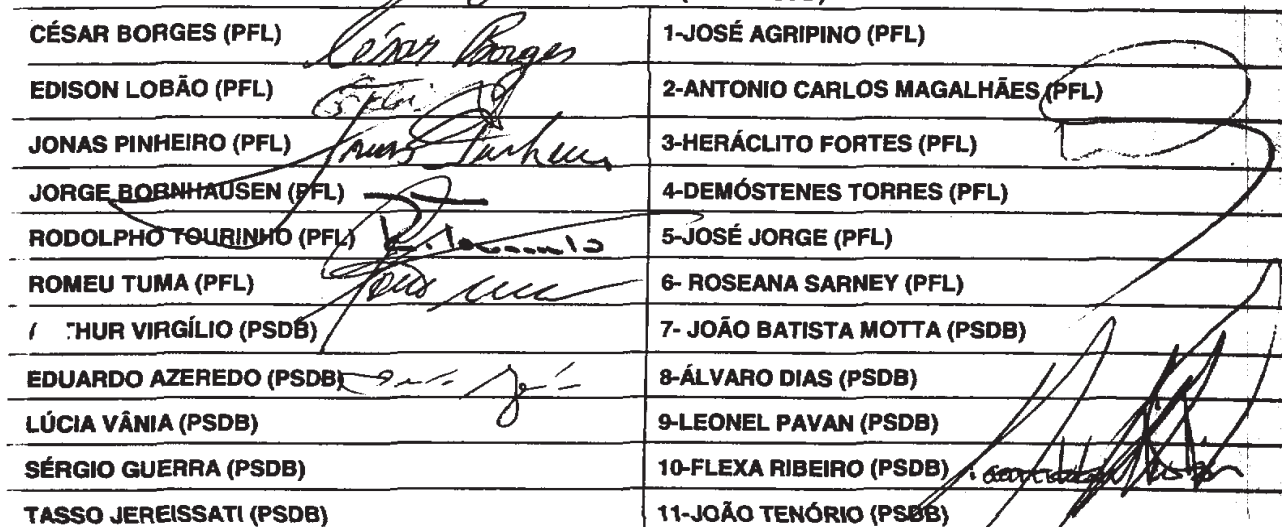 CÉSAR BORGES (PFL) César Borges 1-JOSÉ AGRIPINO (PFL)
EDISON LOBÃO (PFL) 2-ANTONIO CARLOS MAGALHÃES (PFL)
JONAS PINHEIRO (PFL) 3-HERÁCLITO FORTES (PFL)
JORGE BORNHAUSEN (PFL) 4-DEMÓSTENES TORRES (PFL)
RODOLPHO TOURINHO (PFL) 5-JOSÉ JORGE (PFL)
ROMEU TUMA (PFL) 6- ROSEANA SARNEY (PFL)
THUR VIRGÍLIO (PSDB) 7- JOÃO BATISTA MOTTA (PSDB)
EDUARDO AZEREDO (PSDB) 8-ÁLVARO DIAS (PSDB)
LÚCIA VÂNIA (PSDB) 9-LEONEL PAVAN (PSDB)
SÉRGIO GUERRA (PSDB) 10-FLEXA RIBEIRO (PSDB)
TASSO JEREISSATI (PSDB) 11-JOÃO TENÓRIO (PSDB)